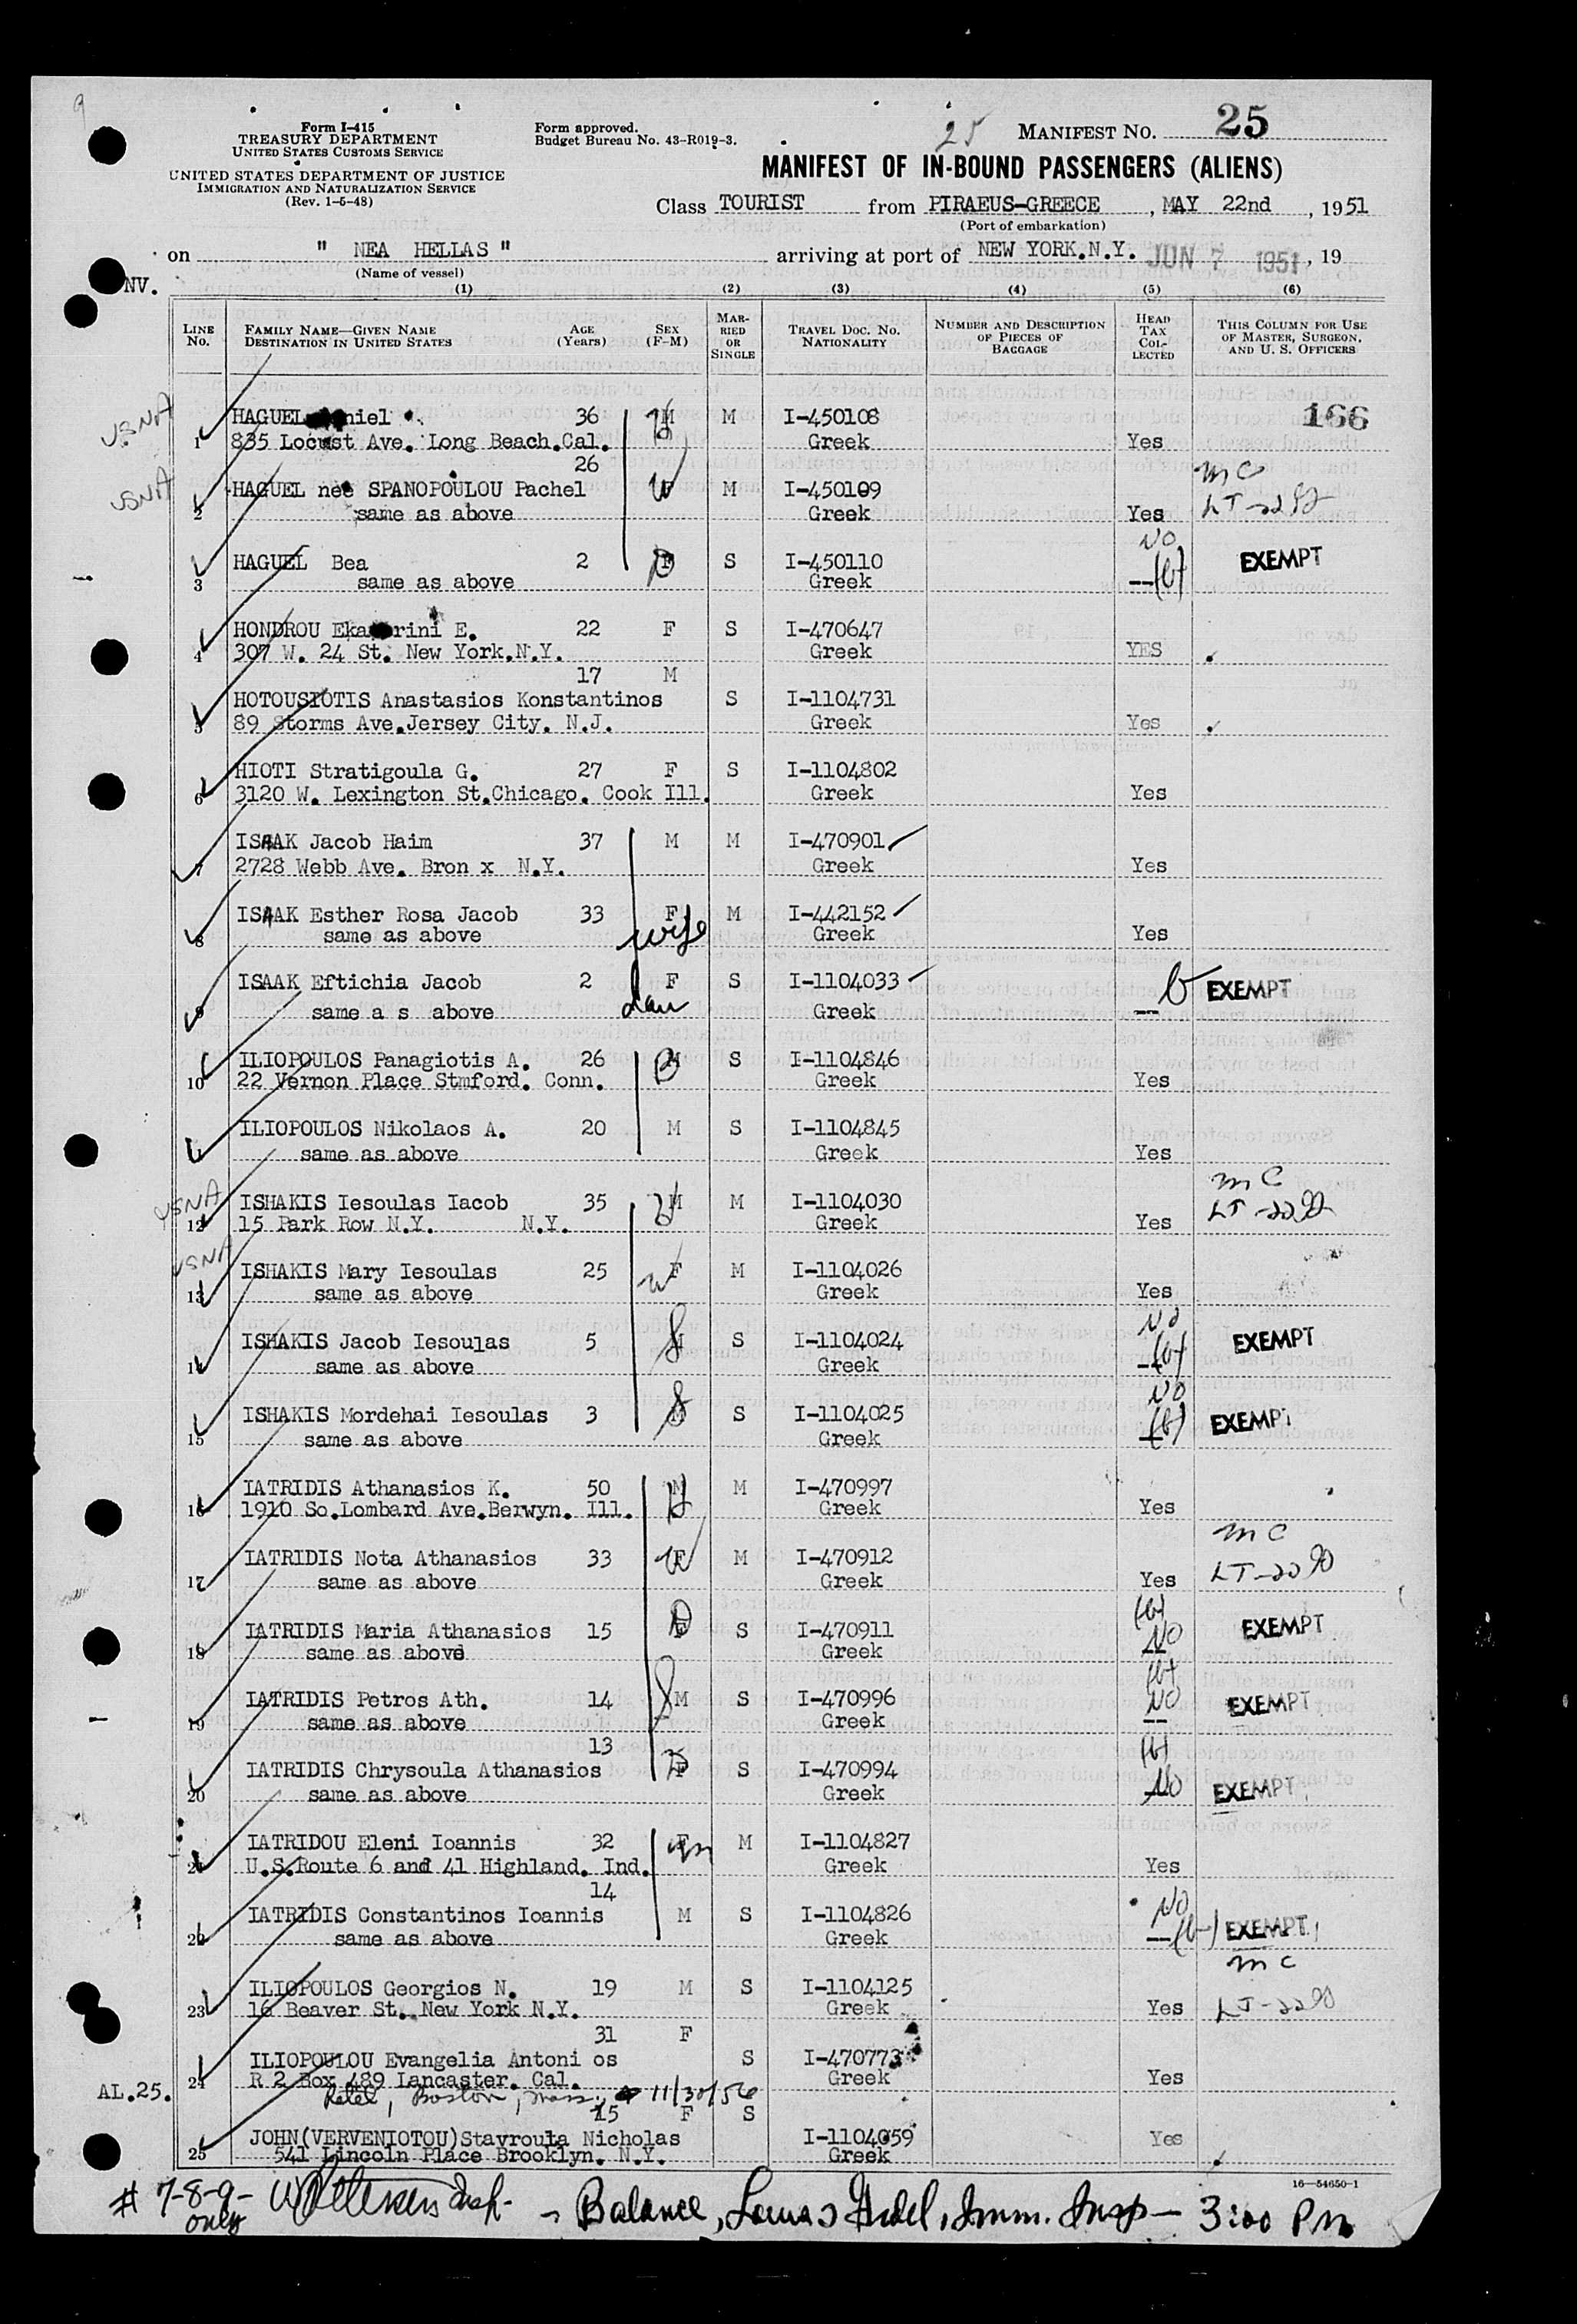 Form I-415
TREASURY DEPARTMENT
UNITED STATES CUSTOMS SERVICE
UNITED STATES DEPARTMENT OF JUSTICE
IMMIGRATION AND NATURALIZATION SERVICE
(Rev. 1-5-48)
Form approved.
Budget Bureau No. 43-R019-3.
25 MANIFEST NO. 25
MANIFEST OF IN-BOUND PASSENGERS (ALIENS)
Class TOURIST from PIRAEUS-GREECE, MAY 22nd, 1951
(Port of embarkation)
on " NEA HELLAS " arriving at port of NEW YORK.N.Y. JUN 7 1951, 19
(Name of vessel)
NV.
(1) (2) (3) (4) (5) (6)
LINE NO. FAMILY NAME—GIVEN NAME DESTINATION IN UNITED STATES AGE (Years) SEX (F-M) MARRIED OR SINGLE TRAVEL DOC. NO. NATIONALITY NUMBER AND DESCRIPTION OF PIECES OF BAGGAGE HEAD TAX COLLECTED THIS COLUMN FOR USE OF MASTER, SURGEON, AND U. S. OFFICERS
USNA HAGUEL niel 36 M M I-450108 166
1 835 Locust Ave. Long Beach.Cal. Greek Yes
26 MC
USNA HAGUEL nee SPANOPOULOU Pachel W F M I-450109
2 same as above Greek Yes
No
HAGUEL Bea 2 F S I-450110 EXEMPT
3 same as above Greek —(b)
HONDROU Eka rini E. 22 F S I-470647
4 307 W. 24 St. New York.N.Y. Greek YES
17 M
HOTOUSIOTIS Anastasios Konstantinos S I-1104731
5 89 Storms Ave.Jersey City. N.J. Greek Yes
HIOTI Stratigoula G. 27 F S I-1104802
6 3120 W. Lexington St.Chicago. Cook Ill. Greek Yes
ISAAK Jacob Haim 37 M M I-470901
7 2728 Webb Ave. Bron x N.Y. Greek Yes
ISAAK Esther Rosa Jacob 33 F M I-442152
8 same as above wife Greek Yes
ISAAK Eftichia Jacob 2 F S I-1104033 b EXEMPT
9 same a s above dau Greek —
ILIOPOULOS Panagiotis A. 26 M B S I-1104846
10 22 Vernon Place Stmford. Conn. Greek Yes
ILIOPOULOS Nikolaos A. 20 M S I-1104845
same as above Greek Yes
MC
USNA ISHAKIS Iesoulas Iacob 35 M M I-1104030
12 15 Park Row N.Y. N.Y. Greek Yes
USNA ISHAKIS Mary Iesoulas 25 W F M I-1104026
13 same as above Greek Yes
No
ISHAKIS Jacob Iesoulas 5 M S I-1104024 EXEMPT
14 same as above Greek —(b)
No
ISHAKIS Mordehai Iesoulas 3 M S I-1104025 EXEMPT
15 same as above Greek —(b)
IATRIDIS Athanasios K. 50 M H M I-470997
16 1910 So.Lombard Ave.Berwyn. Ill. Greek Yes
MC
IATRIDIS Nota Athanasios 33 W F M I-470912
17 same as above Greek Yes LT-2290
(b)
IATRIDIS Maria Athanasios 15 D F S I-470911 EXEMPT
18 same as above Greek No
(b)
IATRIDIS Petros Ath. 14 S M S I-470996 No EXEMPT
19 same as above Greek —
13 (b)
IATRIDIS Chrysoula Athanasios D F S I-470994
20 same as above Greek No EXEMPT
IATRIDOU Eleni Ioannis 32 F M I-1104827
21 U.S.Route 6 and 41 Highland. Ind. Greek Yes
14 No
IATRIDIS Constantinos Ioannis M S I-1104826 EXEMPT
22 same as above Greek —(b)
MC
ILIOPOULOS Georgios N. 19 M S I-1104125
23 16 Beaver St. New York N.Y. Greek Yes LT-2290
31 F
ILIOPOULOU Evangelia Antoni os S I-470773
24 R 2 Box 489 Lancaster. Cal. Greek Yes
AL.25. Boston, Mass. 11/30/56
15 F S
JOHN(VERVENIOTOU)Stavroula Nicholas I-1104059 Yes
25 541 Lincoln Place Brooklyn. N.Y. Greek
16—54650-1
# 7-8-9- only Insp. - Balance, Imm. Insp— 3:00 PM